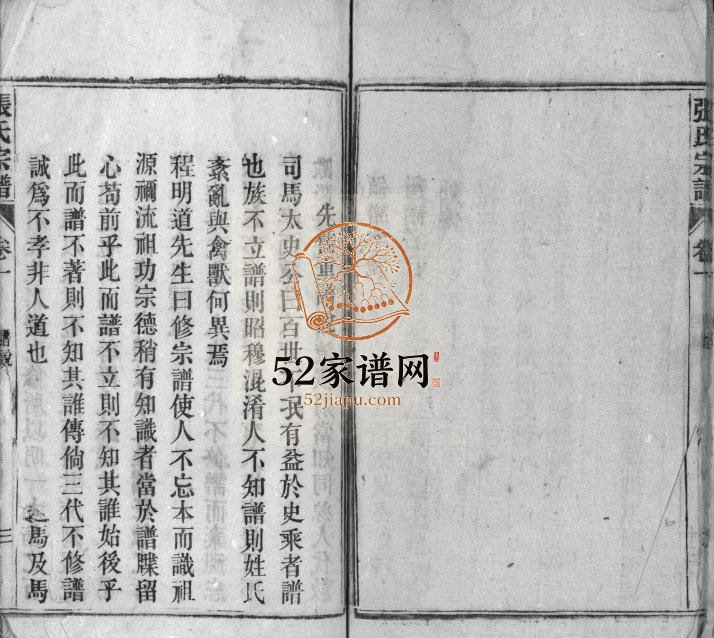 張氏宗譜 卷一
司馬太史公曰百世不泯有益於史乘者譜
也族不立譜則昭穆混淆人不知譜則姓氏
紊亂與禽獸何異焉
程明道先生曰修宗譜使人不忘本而識祖
源禰流祖功宗德稍有知識者當於譜牒留
心苟前乎此而譜不立則不知其誰始後乎
此而譜不著則不知其誰傳倘三代不修譜
誠爲不孝非人道也
張氏宗譜 卷一 譜說 三
52家谱网
52jiapu.com